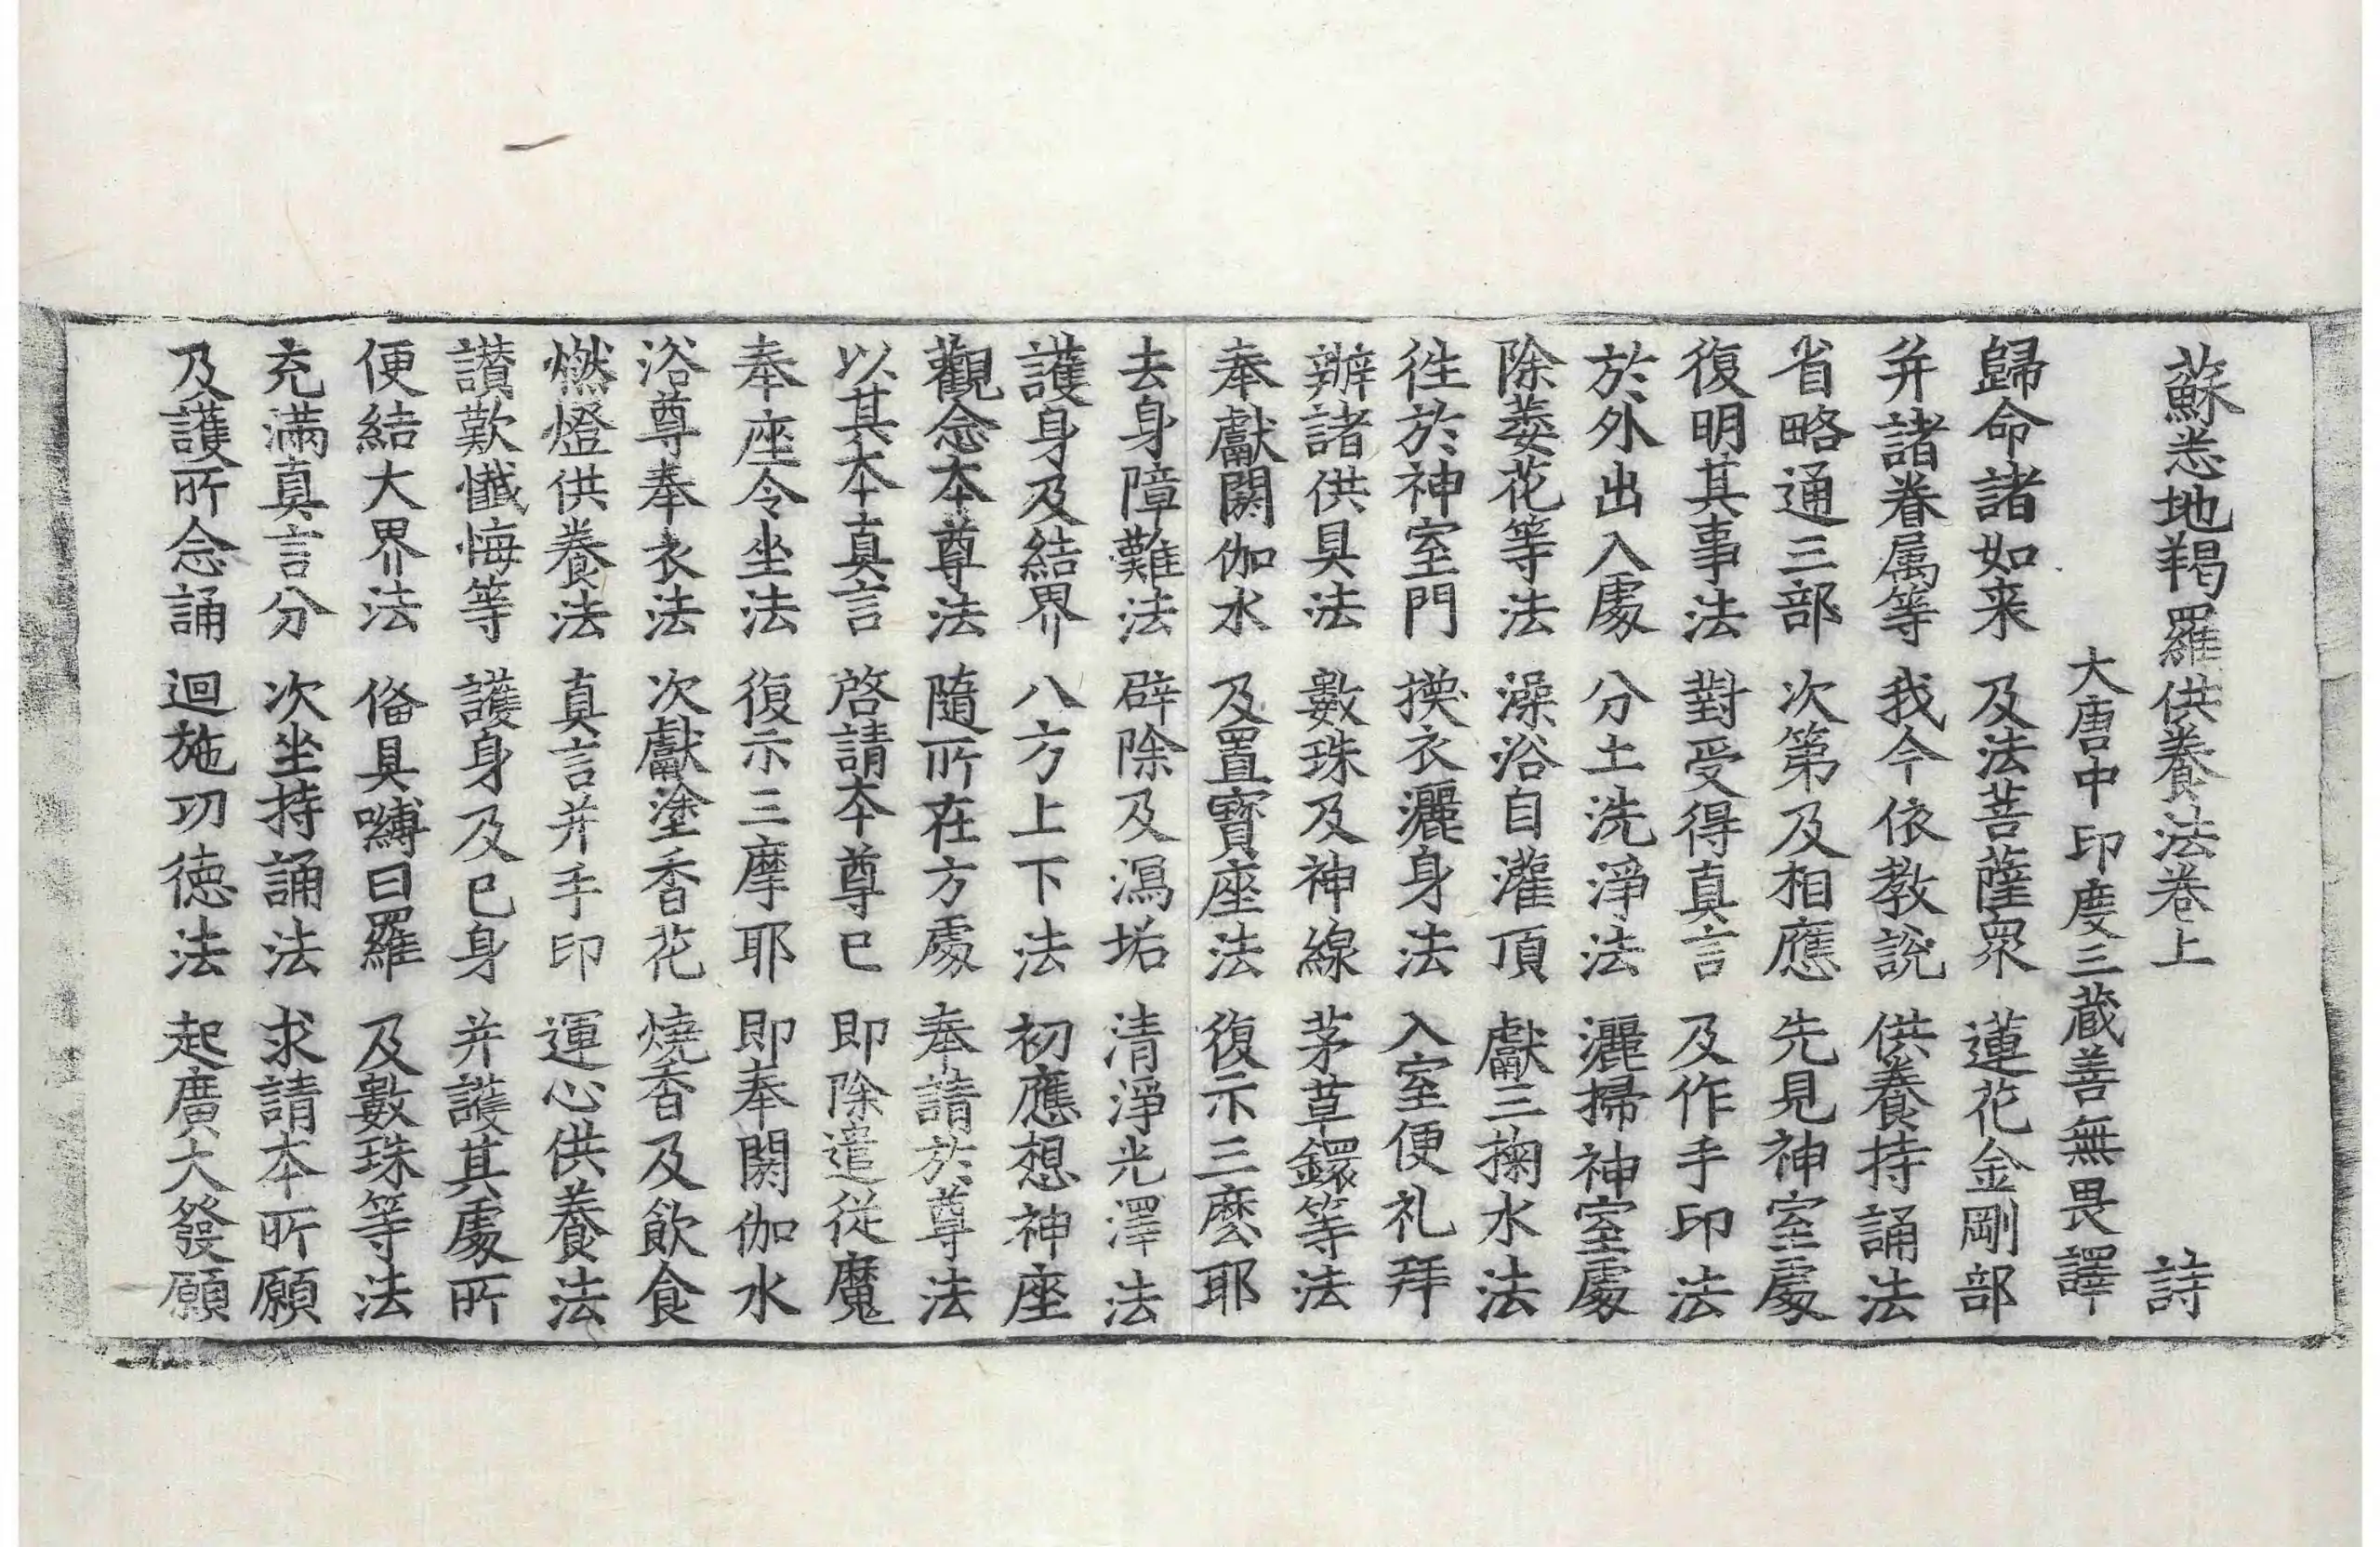 蘇悉地羯羅供養法卷上　詩
大唐中印度三藏善無畏譯
歸命諸如来　及法菩薩眾　蓮花金剛部
并諸眷属等　我今依教說　供養持誦法
省略通三部　次第及相應　先見神室處
復明其事法　對受得真言　及作手印法
於外出入處　分土洗淨法　灑掃神室處
除萎花等法　澡浴自灌頂　獻三掬水法
往於神室門　換衣灑身法　入室便礼拜
辦諸供具法　數珠及神線　茅草鐶等法
奉獻閼伽水　及置寶座法　復示三麽耶
去身障難法　辟除及㵼垢　清淨光澤法
護身及結界　八方上下法　初應想神座
觀念本尊法　隨所在方處　奉請於尊法
以其本真言　啓請本尊已　即除遣從魔
奉座令坐法　復示三摩耶　即奉閼伽水
浴尊奉衣法　次獻塗香花　燒香及飲食
燃燈供養法　真言并手印　運心供養法
讃歎懺悔等　護身及已身　并護其處所
便結大界法　俻具嚩曰羅　及數珠等法
充滿真言分　次坐持誦法　求請本所願
及護所念誦　迴施功德法　起廣大發願